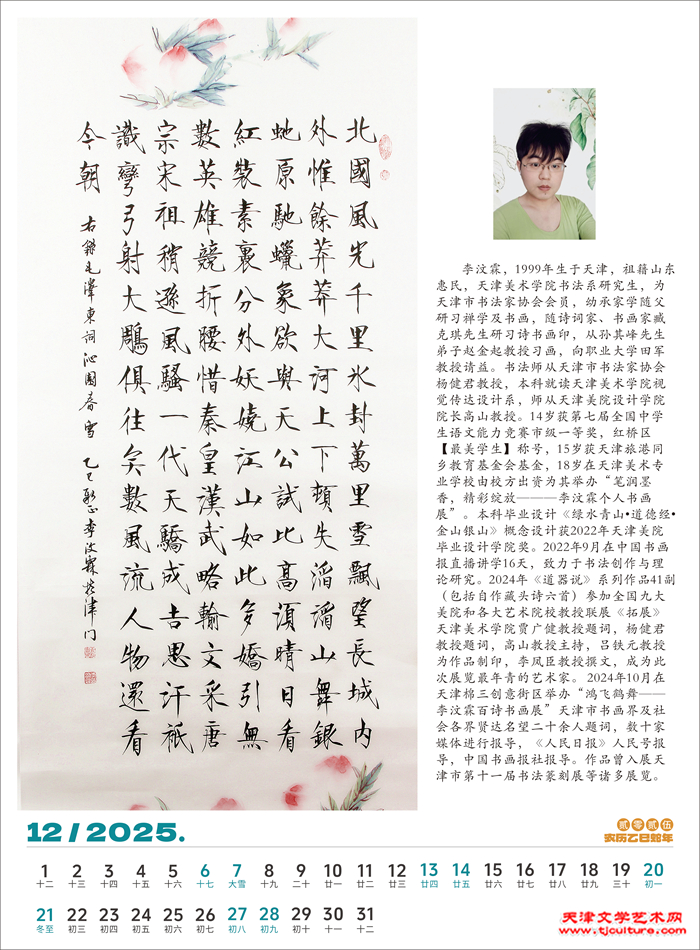 北國風光千里冰封萬里雪飄望長城内
外惟餘莽莽大河上下頓失滔滔山舞銀
虵原馳蠟象欲與天公試比高須晴日看
紅裝素裹分外妖嬈江山如此多嬌引無
數英雄競折腰惜秦皇漢武略輸文采唐
宗宋祖稍遜風騷一代天驕成吉思汗祇
識彎弓射大鵰俱往矣數風流人物還看
今朝
右錄毛澤東詞沁園春雪 乙巳 李汶霖於津門
李汶霖，1999年生于天津，祖籍山东
惠民，天津美术学院书法系研究生，为
天津市书法家协会会员，幼承家学随父
研习禅学及书画，随诗词家、书画家臧
克琪先生研习诗书画印，从孙其峰先生
弟子赵金起教授习画，向职业大学田军
教授请益。书法师从天津市书法家协会
杨健君教授，本科就读天津美术学院视
觉传达设计系，师从天津美院设计学院
院长高山教授。14岁获第七届全国中学
生语文能力竞赛市级一等奖，红桥区
【最美学生】称号，15岁获天津旅港同
乡教育基金会基金，18岁在天津美术专
业学校由校方出资为其举办“笔润墨
香，精彩绽放———李汶霖个人书画
展”。本科毕业设计《绿水青山•道德经•
金山银山》概念设计获2022年天津美院
毕业设计学院奖。2022年9月在中国书画
报直播讲学16天，致力于书法创作与理
论研究。2024年《道器说》系列作品41副
（包括自作藏头诗六首）参加全国九大
美院和各大艺术院校教授联展《拓展》
天津美术学院贾广健教授题词，杨健君
教授题词，高山教授主持，吕铁元教授
为作品制印，李凤臣教授撰文，成为此
次展览最年青的艺术家。2024年10月在
天津棉三创意街区举办“鸿飞鹤舞——
李汶霖百诗书画展”天津市书画界及社
会各界贤达名望二十余人题词，数十家
媒体进行报导，《人民日报》人民号报
导，中国书画报社报导。作品曾入展天
津市第十一届书法篆刻展等诸多展览。
12/2025.
贰零贰伍
农历乙巳蛇年
1 2 3 4 5 6 7 8 9 10 11 12 13 14 15 16 17 18 19 20
十二 十三 十四 十五 十六 十七 大雪 十九 二十 廿一 廿二 廿三 廿四 廿五 廿六 廿七 廿八 廿九 三十 初一
21 22 23 24 25 26 27 28 29 30 31
冬至 初三 初四 初五 初六 初七 初八 初九 初十 十一 十二
天津文学艺术网
www.tjculture.com